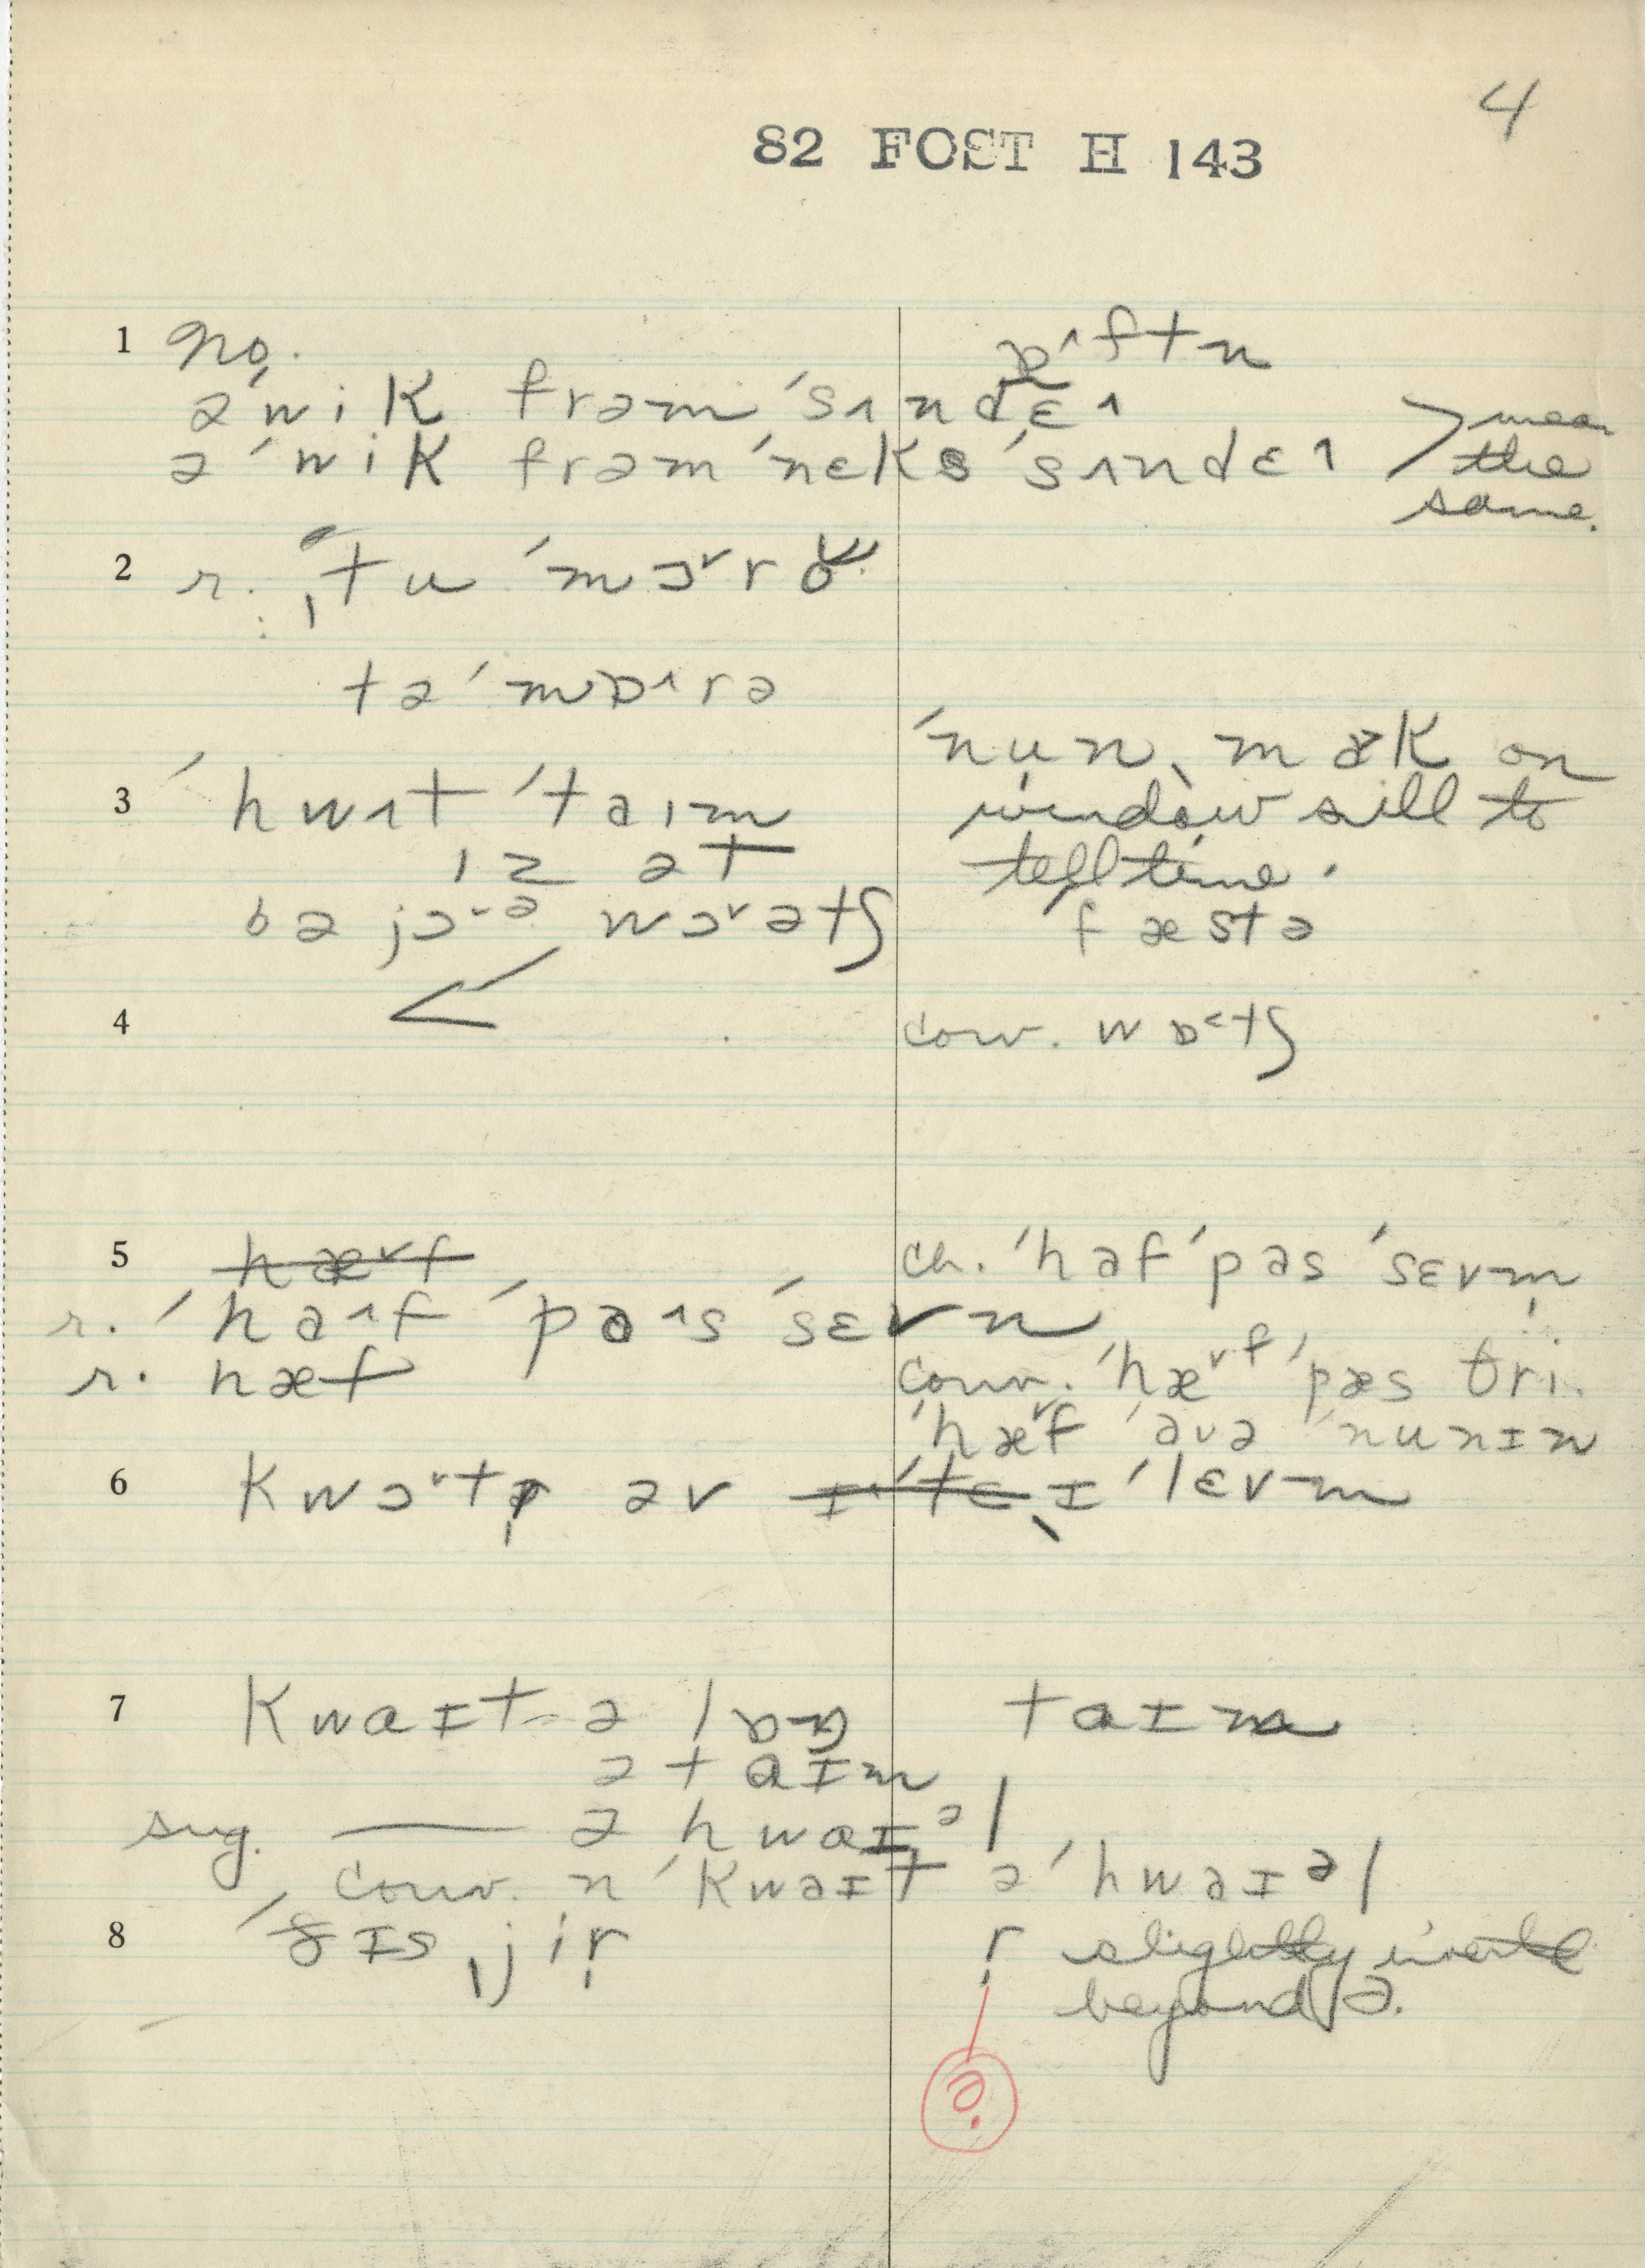 4
82 FOST H 143
1 no.
ɒ˄ftn
ə'wik frəm 'sʌndɛɪ
ə'wik frəm 'nɛks 'sʌndɛɪ > mean the same.
2 r. ˌtu 'mɔ˅ro
tə'mɒ˄rə
3 'hwʌt 'taɪm
ɪz ət
bə jɔ˅ə wɔ˅ətʃ
'nun ˌmak on
window sill to
tell time.
fæstə
4 conv. wɒ˂tʃ
5 hæ˅f
ch. 'haf 'pas 'sɛvm̩
r. 'ha˄f 'pa˄s 'sɛvn
r. hæf
conv. 'hæ˅f 'pæs θri.
'hæ˅f 'avə 'nunɪn
6 kwɔ˅tə əv ɪ'tɛ ɪ'lɛvm
7 kwaɪt ə lɒŋ taɪm
ə taɪm
sug. — ə hwaɪəl
conv. n 'kwaɪt ə'hwaɪəl
8 'ðɪs ˌjir
r slightly invert
beyond ə.
ə.